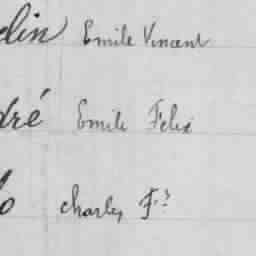 lin Emile Vincent
dré Emile Felix
Charles F.?